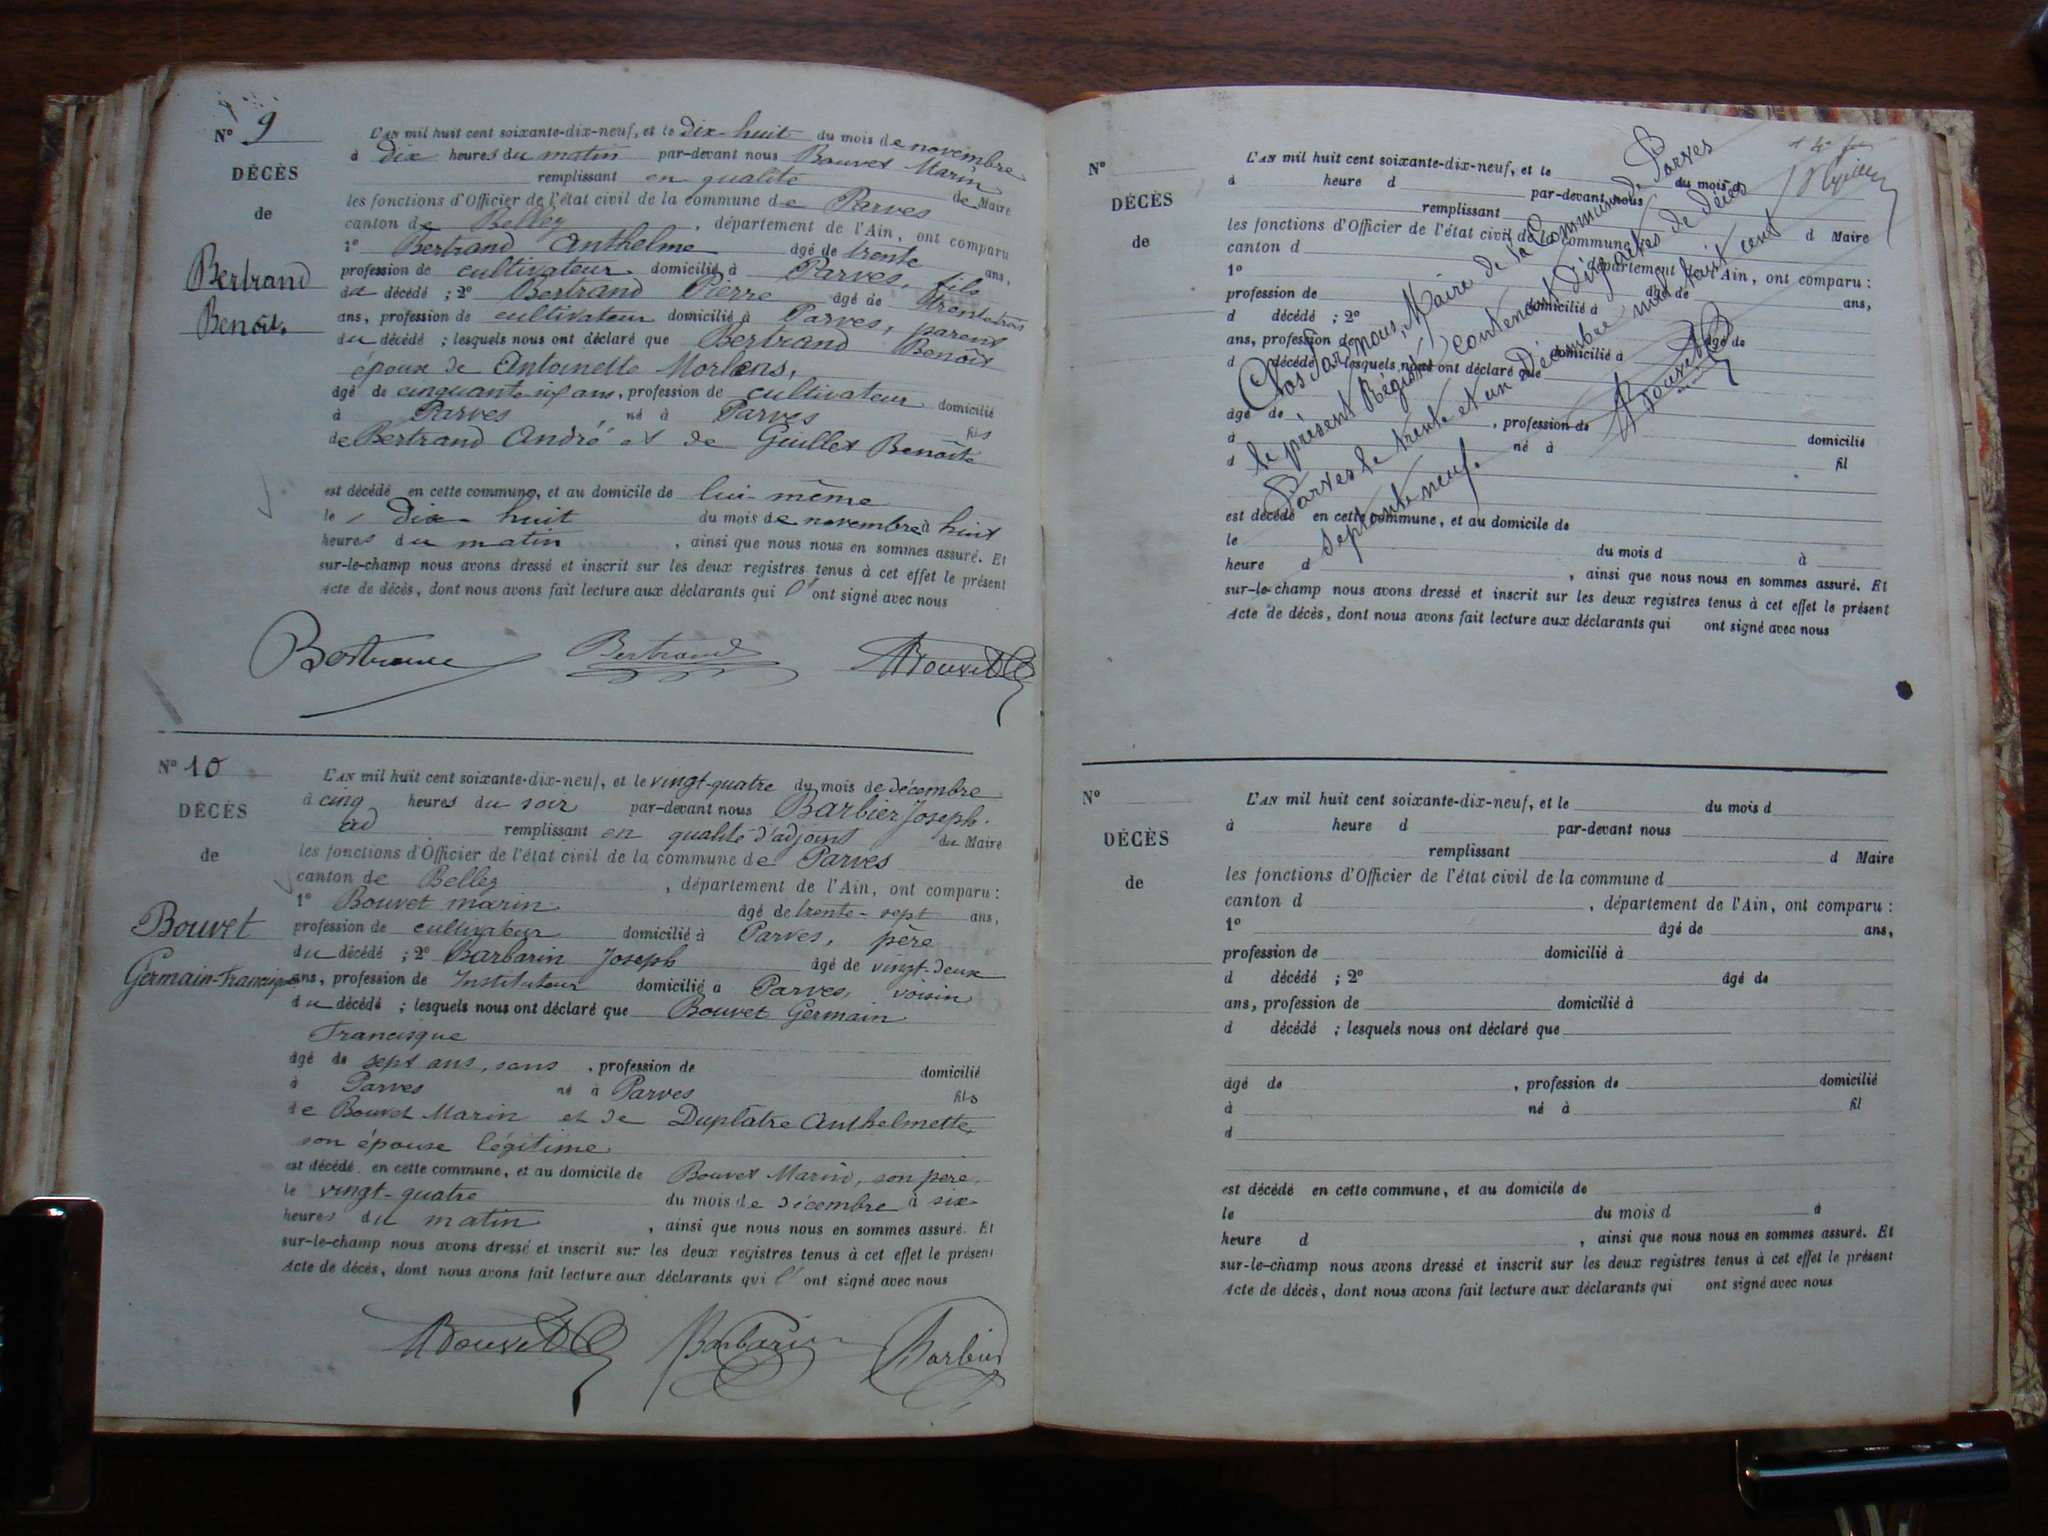 N° 9
DÉCÈS
de
Bertrand
Benoît.
L'AN mil huit cent soixante-dix-neuf, et le dix-huit du mois de novembre
à dix heures du matin par-devant nous Bouvet Marin
remplissant en qualité de Maire
les fonctions d'Officier de l'état civil de la commune de Parves
canton de Belley, département de l'Ain, ont comparu
1° Bertrand Anthelme âgé de trente ans,
profession de cultivateur domicilié à Parves, fils
du décédé ; 2° Bertrand Pierre âgé de trente trois
ans, profession de cultivateur domicilié à Parves, parent
du décédé ; lesquels nous ont déclaré que Bertrand Benoît
époux de Antoinette
âgé de cinquante ans, profession de cultivateur domicilié
à Parves, né à Parves fils
de Bertrand André et de Guillet Benoîte
est décédé en cette commune, et au domicile de lui-même
le dix-huit du mois de novembre à huit
heures du matin, ainsi que nous nous en sommes assuré. Et
sur-le-champ nous avons dressé et inscrit sur les deux registres tenus à cet effet le présent
Acte de décès, dont nous avons fait lecture aux déclarants qui l'ont signé avec nous
Bertrand Bertrand Bouvet
N° 10
DÉCÈS
de
Bouvet
Germain-Francisque
L'AN mil huit cent soixante-dix-neuf, et le vingt-quatre du mois de décembre
à cinq heures du soir par-devant nous Barbier Joseph.
ad remplissant en qualité d'adjoint du Maire
les fonctions d'Officier de l'état civil de la commune de Parves
canton de Belley, département de l'Ain, ont comparu :
1° Bouvet marin âgé de trente-sept ans,
profession de cultivateur domicilié à Parves, père
du décédé ; 2° Barbarin Joseph âgé de vingt-deux
ans, profession de Instituteur domicilié à Parves, voisin
du décédé ; lesquels nous ont déclaré que Bouvet Germain
Francisque
âgé de sept ans, sans, profession de domicilié
à Parves né à Parves fils
de Bouvet Marin et de Duplâtre Anthelmette,
son épouse légitime
est décédé en cette commune, et au domicile de Bouvet Marin, son père,
le vingt-quatre du mois de décembre à six
heures du matin, ainsi que nous nous en sommes assuré. Et
sur-le-champ nous avons dressé et inscrit sur les deux registres tenus à cet effet le présent
Acte de décès, dont nous avons fait lecture aux déclarants qui l'ont signé avec nous
Bouvet Barbarin Barbier
N°
DÉCÈS
de
L'AN mil huit cent soixante-dix-neuf, et le du mois d
à heure d par-devant nous
remplissant d Maire
les fonctions d'Officier de l'état civil de la commune d
canton d, département de l'Ain, ont comparu :
1° âgé de ans,
profession de domicilié à
d décédé ; 2° âgé de
ans, profession de domicilié à
d décédé ; lesquels nous ont déclaré que
âgé de, profession de domicilié
à né à fil
d
est décédé en cette commune, et au domicile de
le du mois d à
heure d, ainsi que nous nous en sommes assuré. Et
sur-le-champ nous avons dressé et inscrit sur les deux registres tenus à cet effet le présent
Acte de décès, dont nous avons fait lecture aux déclarants qui ont signé avec nous
Clos par nous, Maire de la Commune de Parves
le présent Régistre contenant dix actes de décès
Parves le trente et un Décembre mil huit cent
septante neuf.
Bouvet
N°
DÉCÈS
de
L'AN mil huit cent soixante-dix-neuf, et le du mois d
à heure d par-devant nous
remplissant d Maire
les fonctions d'Officier de l'état civil de la commune d
canton d, département de l'Ain, ont comparu :
1° âgé de ans,
profession de domicilié à
d décédé ; 2° âgé de
ans, profession de domicilié à
d décédé ; lesquels nous ont déclaré que
âgé de, profession de domicilié
à né à fil
d
est décédé en cette commune, et au domicile de
le du mois d à
heure d, ainsi que nous nous en sommes assuré. Et
sur-le-champ nous avons dressé et inscrit sur les deux registres tenus à cet effet le présent
Acte de décès, dont nous avons fait lecture aux déclarants qui ont signé avec nous